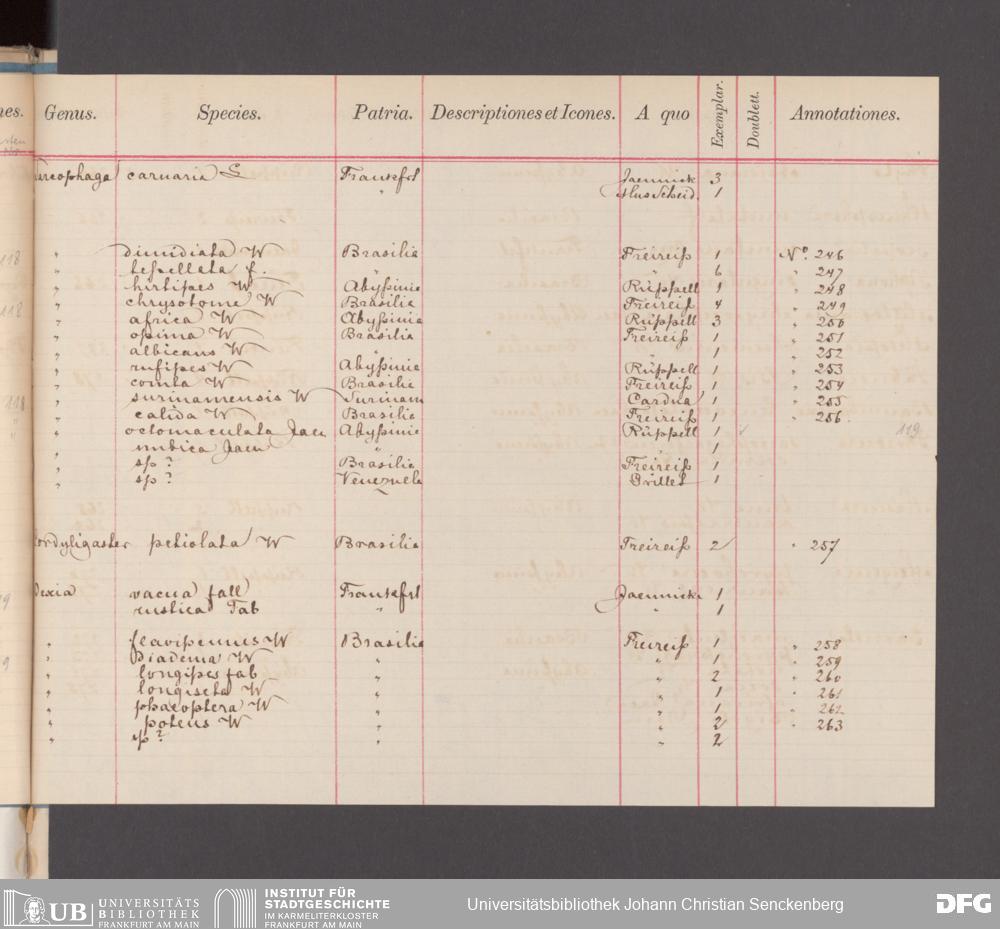 nes. Genus. Species. Patria. Descriptiones et Icones. A quo Exemplar. Doublett. Annotationes.
Sarcophaga carnaria L Frankfrt Jaennicke 3
" 1
118 " dimidiata W Brasilia Freireiß 1 No. 246
" teßellata f. " " 6 " 247
" hirtipes W Abyßinie Rüppell 1 " 248
118 " chrysotome W Brasilia Freireiß 4 " 249
" africa W Abyßinie Rüppell 3 " 250
" opima W Brasilia Freireiß 1 " 251
" albicans W " " 1 " 252
" rufipes W Abyßinie Rüppell 1 " 253
" comta W Brasilia Freireiß 1 " 254
118 " surinamensis W Surinam 1 " 255
" " calida W Brasilia Freireiß 1 " 256.
" octomaculata Jaen Abyßinie Rüppell 1 119
" mutica Jaen " " 1
" sp ? Brasilia Freireiß 1
" sp ? Venezuela Grillet 1
Cordyligaster petiolata W Brasilia Freireiß 2 " 257
Dexia vacua fall Frankfrt Jaennicke 1
rustica Fab " " 1
" flavipennis W Brasilia Freireiß 1 " 258
" Diadema W " " 1 " 259
" longipes fab " " 2 " 260
" longiseta W " " 1 " 261
" phaeoptera W " " 1 " 262
" potens W " " 2 " 263
" sp ? " " 2
UB UNIVERSITÄTS BIBLIOTHEK FRANKFURT AM MAIN
INSTITUT FÜR STADTGESCHICHTE IM KARMELITERKLOSTER FRANKFURT AM MAIN
Universitätsbibliothek Johann Christian Senckenberg
DFG